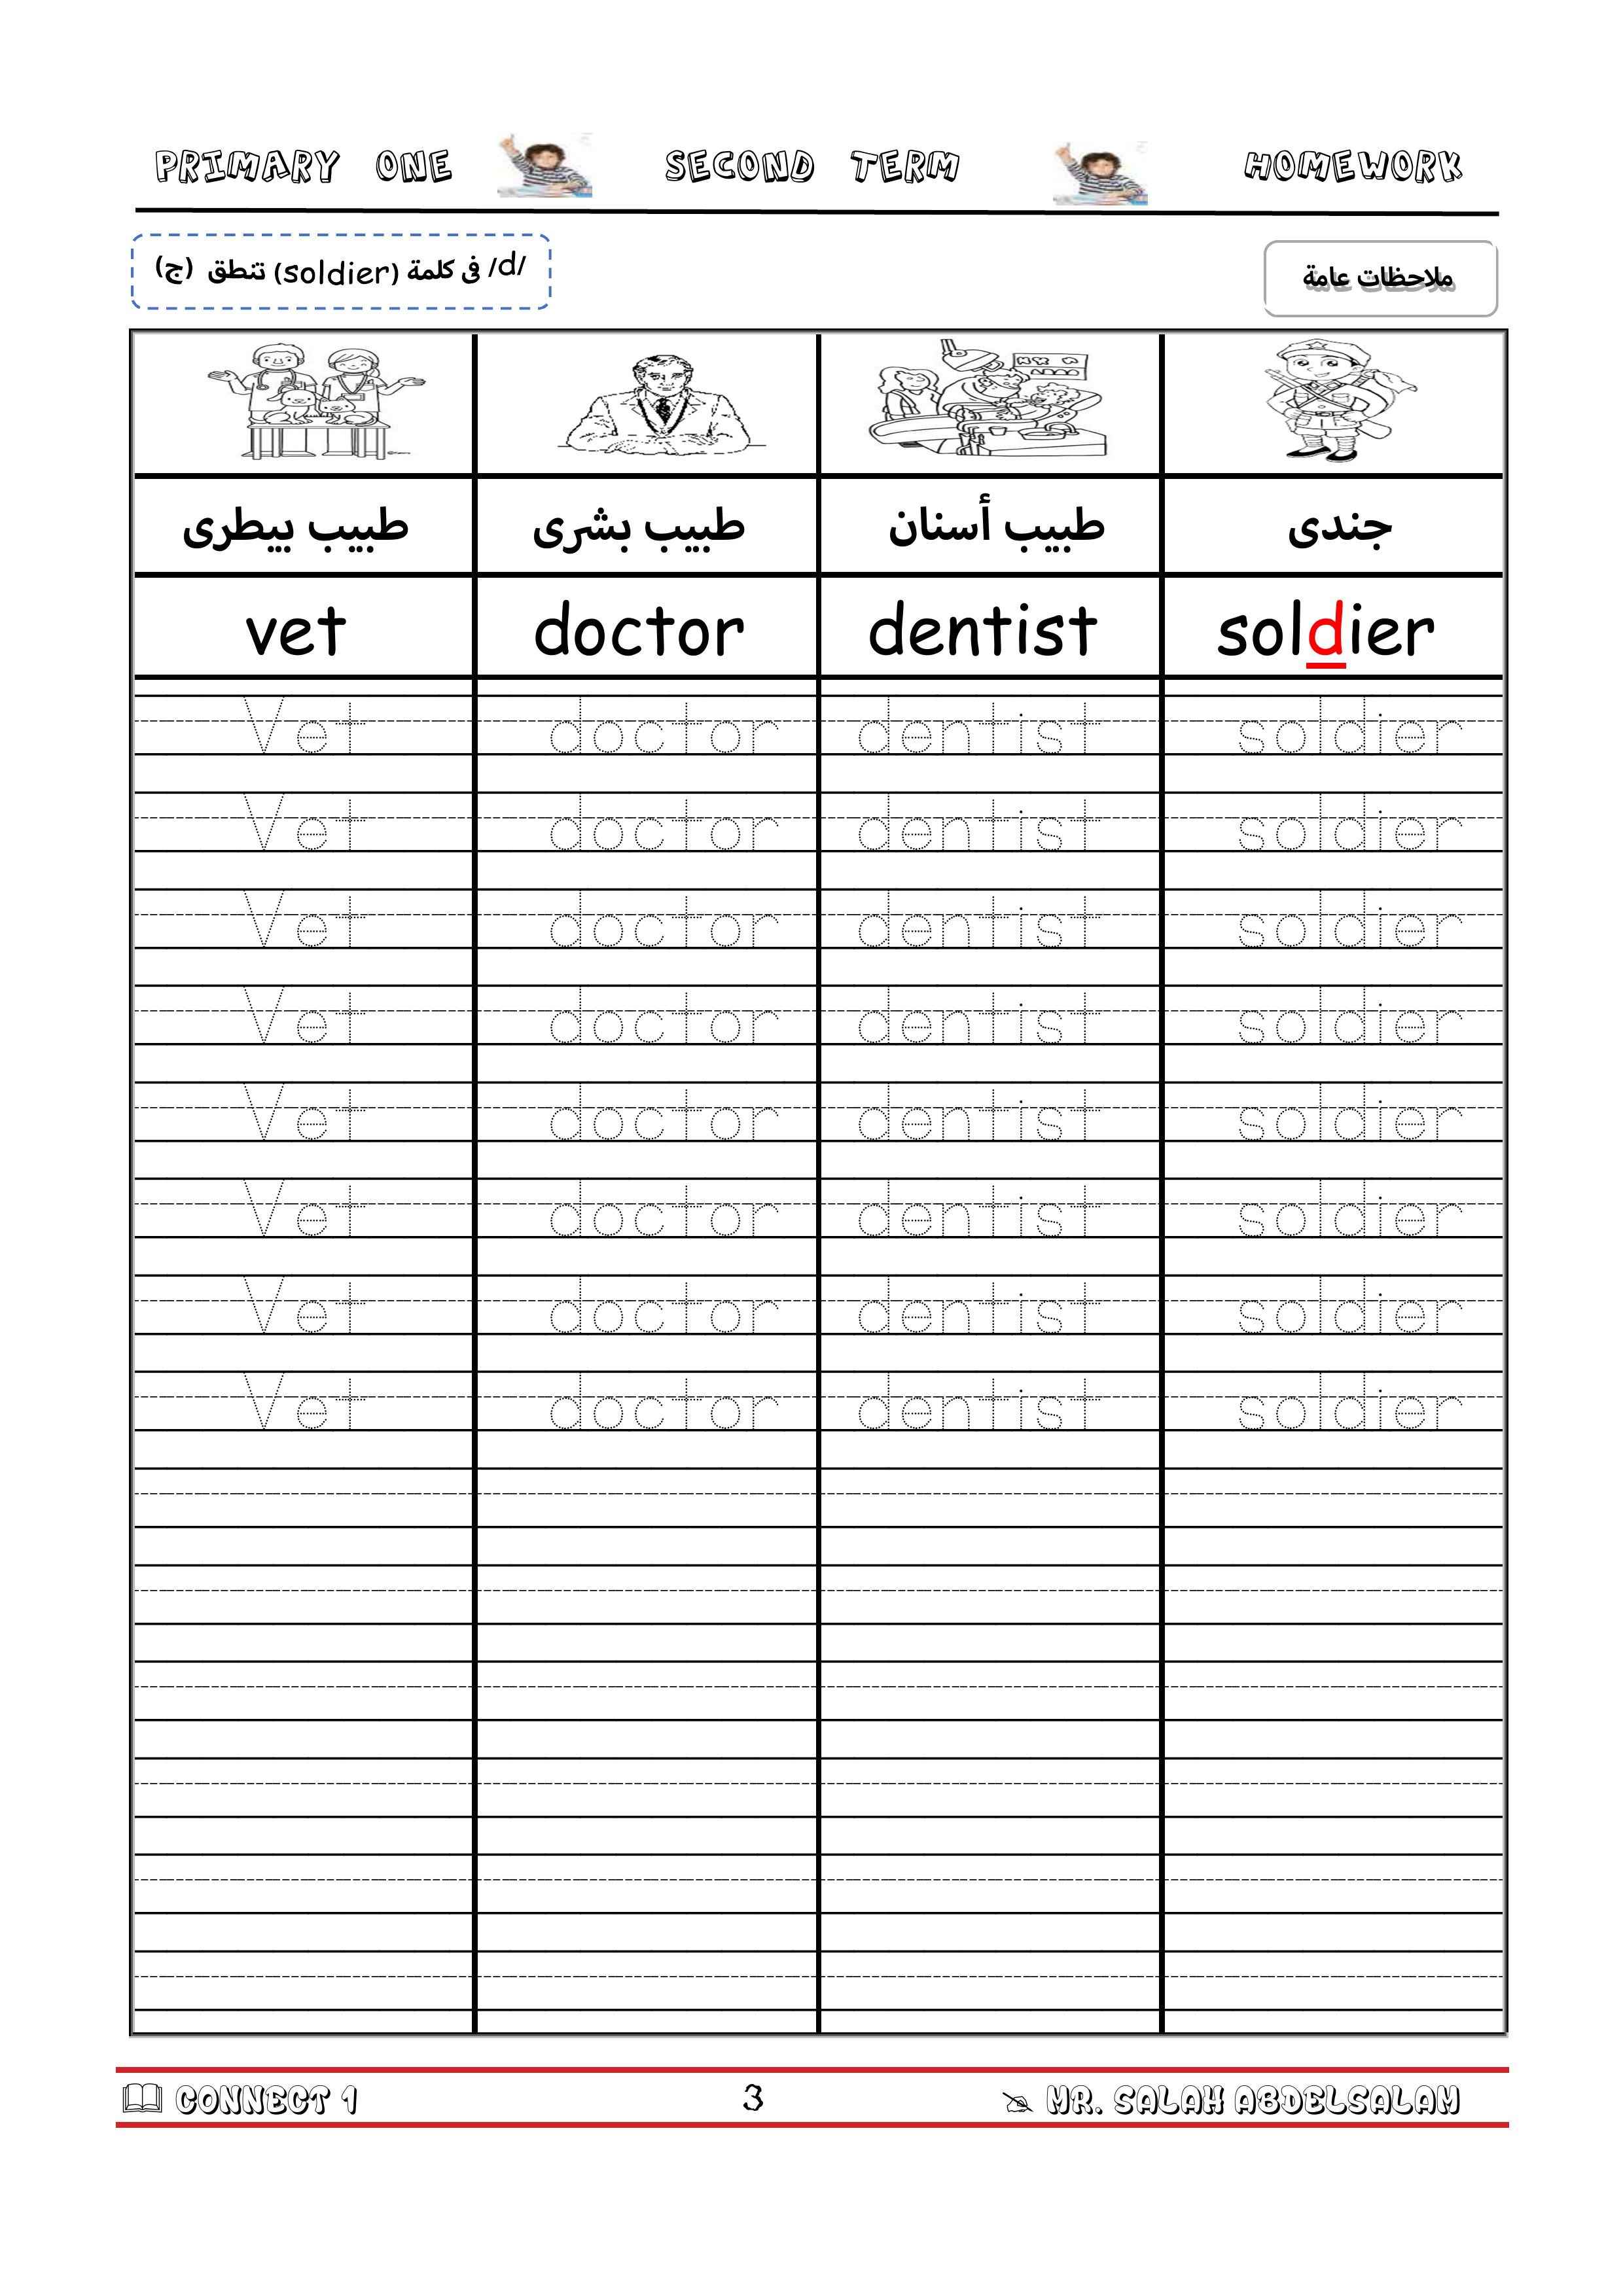 PRIMARY ONE SECOND TERM HOMEWORK
ملاحظات عامة
/d/ فى كلمة (soldier) تنطق (ج)
طبيب بيطرى طبيب بشرى طبيب أسنان جندى
vet doctor dentist soldier
Vet doctor dentist soldier
Vet doctor dentist soldier
Vet doctor dentist soldier
Vet doctor dentist soldier
Vet doctor dentist soldier
Vet doctor dentist soldier
Vet doctor dentist soldier
Vet doctor dentist soldier
CONNECT 1 3 MR. SALAH ABDELSALAM